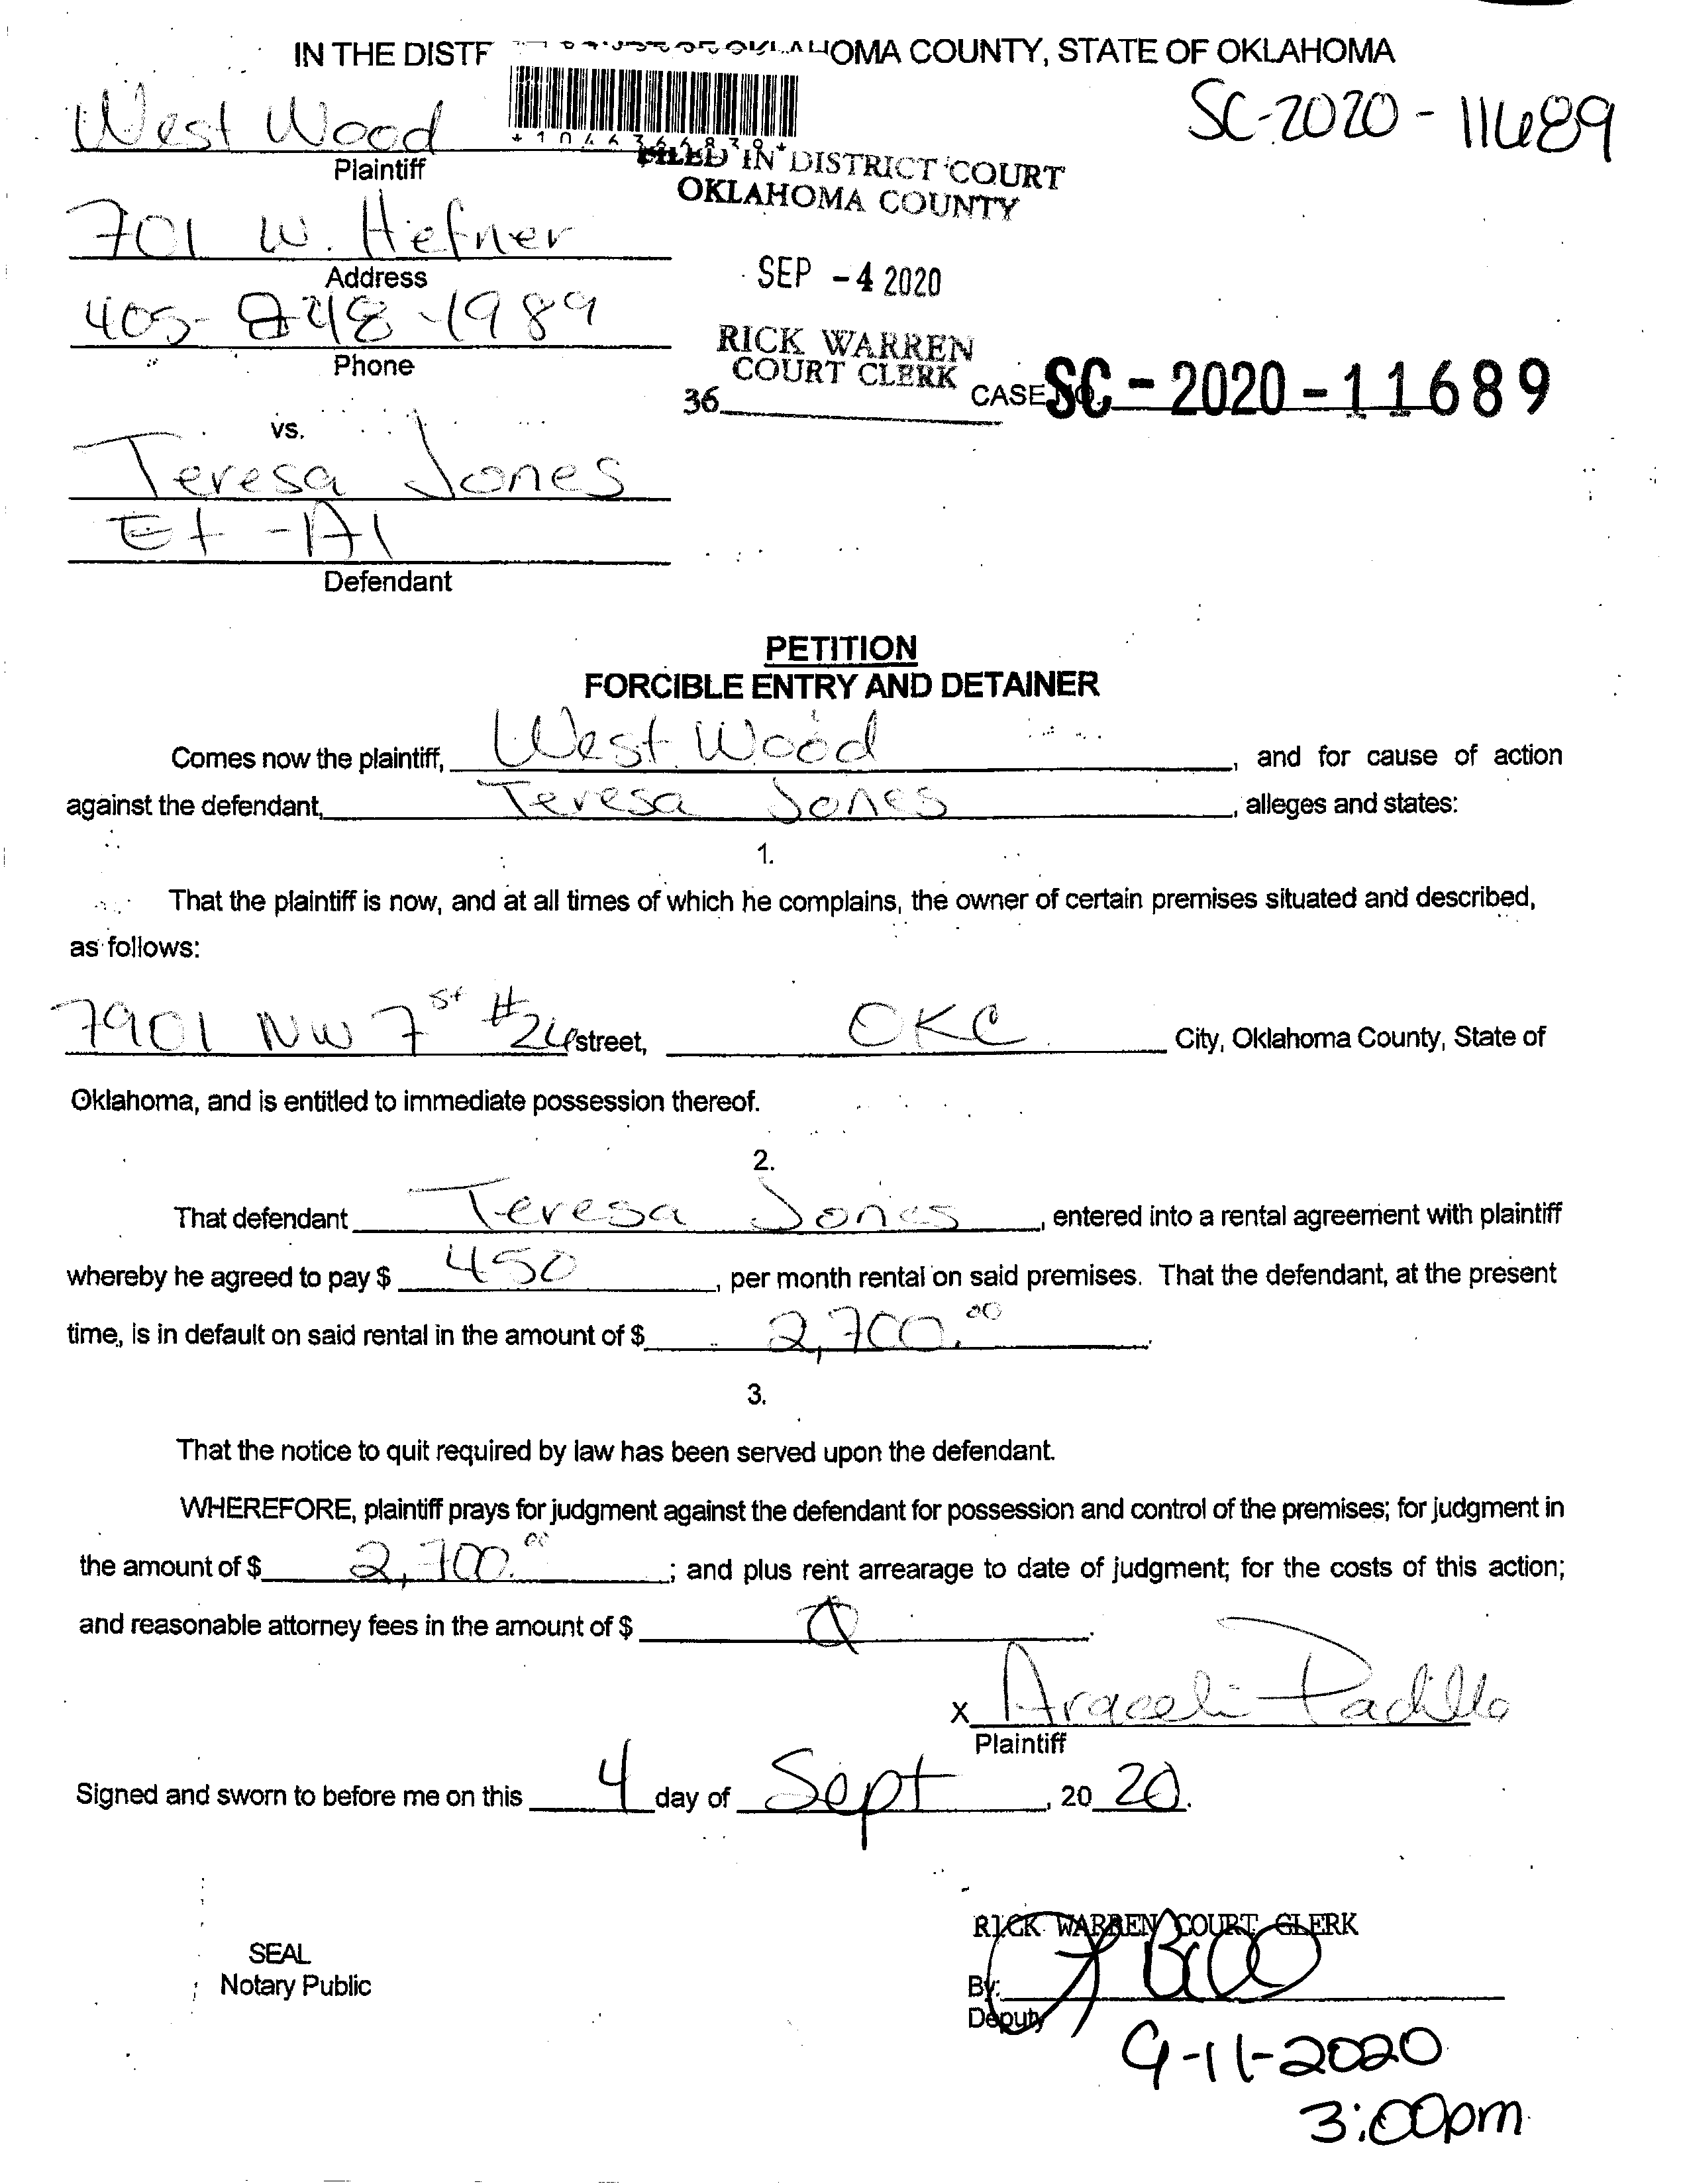 IN THE DISTR OKLAHOMA COUNTY, STATE OF OKLAHOMA
SC-2020-11689
West Wood
Plaintiff
FILED IN DISTRICT COURT
OKLAHOMA COUNTY
701 W. Hefner
Address
SEP -4 2020
405- 848-1989
Phone
RICK WARREN
COURT CLERK
36
CASE NO. SC-2020-11689
vs.
Teresa Jones
Et -Al
Defendant
PETITION
FORCIBLE ENTRY AND DETAINER
Comes now the plaintiff, West Wood, and for cause of action
against the defendant, Teresa Jones, alleges and states:
1.
That the plaintiff is now, and at all times of which he complains, the owner of certain premises situated and described,
as follows:
7901 NW 7st #24 street, OKC City, Oklahoma County, State of
Oklahoma, and is entitled to immediate possession thereof.
2.
That defendant Teresa Jones, entered into a rental agreement with plaintiff
whereby he agreed to pay $ 450, per month rental on said premises. That the defendant, at the present
time, is in default on said rental in the amount of $ 2,700.00.
3.
That the notice to quit required by law has been served upon the defendant.
WHEREFORE, plaintiff prays for judgment against the defendant for possession and control of the premises; for judgment in
the amount of $ 2,700.00; and plus rent arrearage to date of judgment; for the costs of this action;
and reasonable attorney fees in the amount of $
X Araceli Padilla
Plaintiff
Signed and sworn to before me on this 4 day of Sept, 20 20.
RICK WARREN COURT CLERK
SEAL
Notary Public
By:
Deputy
9-11-2020
3:00pm